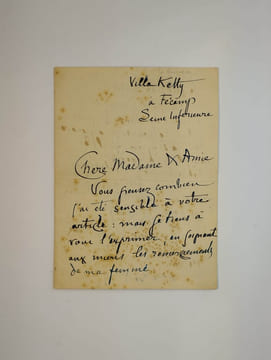 Villa Ketty
a Fécamp
Seine Inférieure
Chère Madame & Amie
Vous pensez combien
j'ai été sensible à votre
article : mais je tiens à
vous l'exprimer, en joignant
aux miens les remerciements
de ma femme